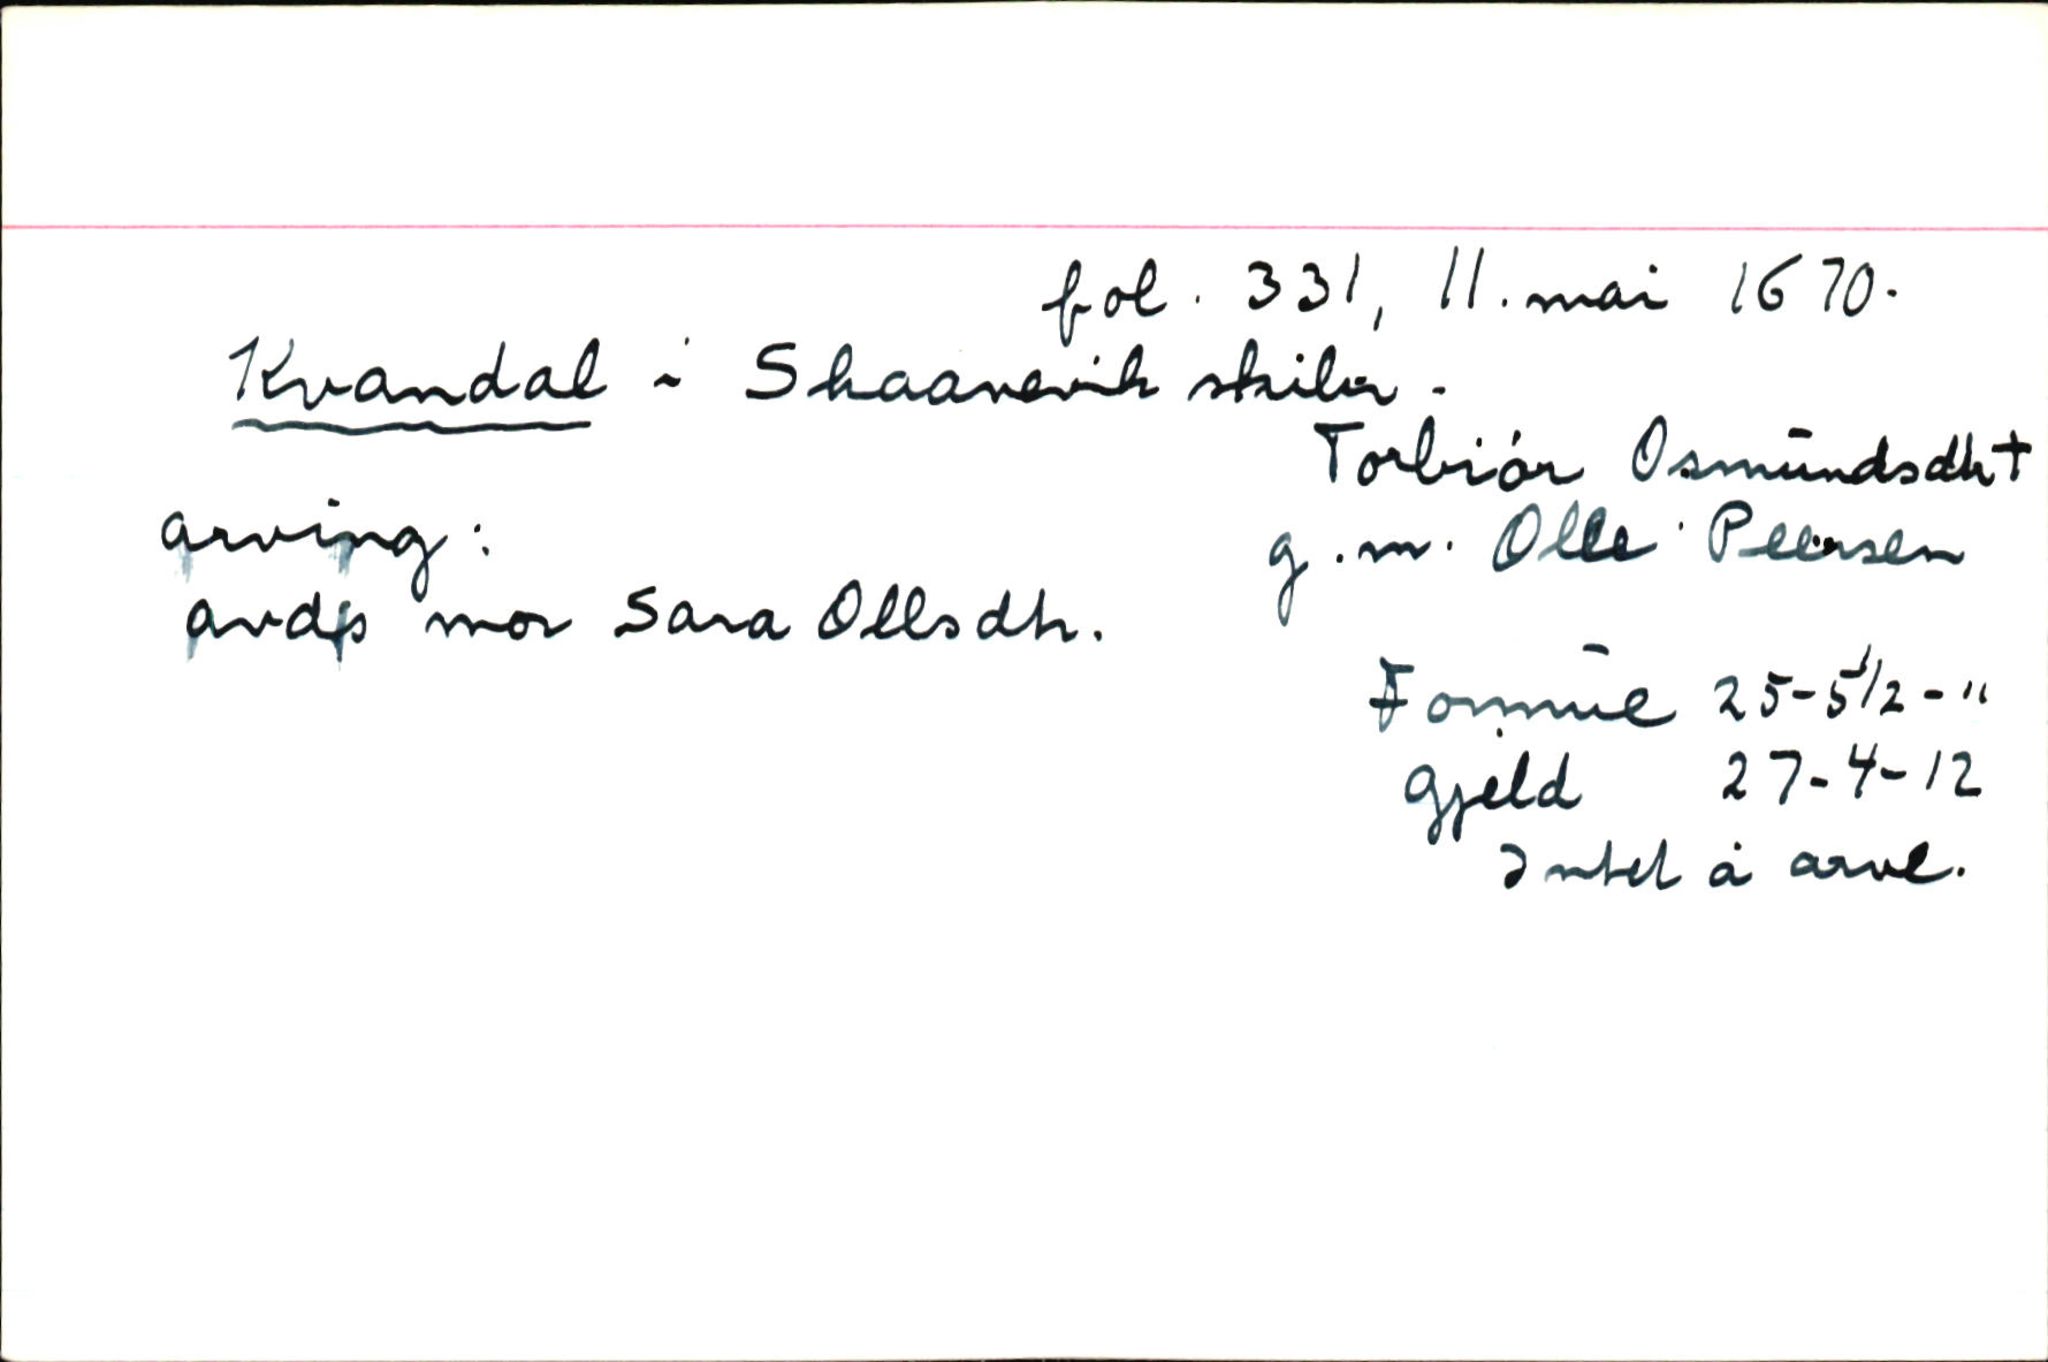 fol. 331, 11. mai 1670.
Kvandal i Skaanevik skibr.
Torbiór Osmundsdtr +
arving: g.m. Olle Peersen
avdøs mor Sara Ollsdtr.
Formue 25-5 1/2-"
Gjeld 27-4-12
Intet å arve.